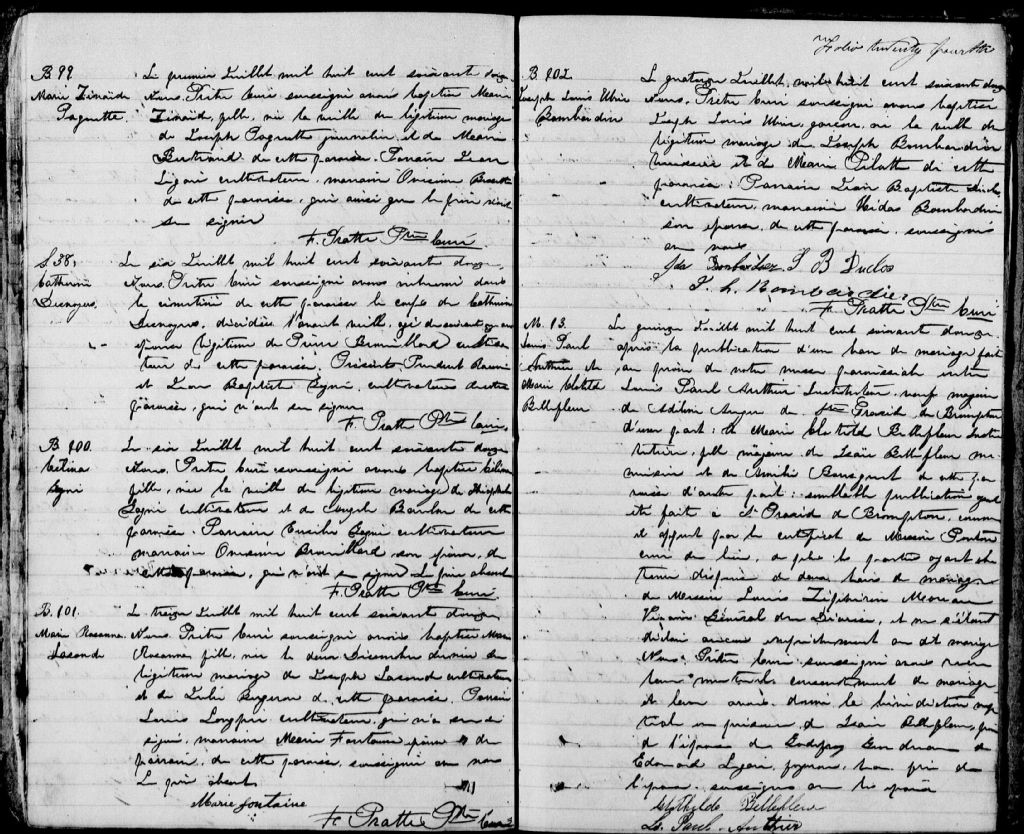 B 99
Marie Zinaïde
Paquette
Le premier Juillet mil huit cent soixante douze,
Nous, Prêtre Curé soussigné avons baptisé Marie
Zinaïde, fille, née la veille du légitime mariage
de Joseph Paquette journalier et de Marie
Bertrand de cette paroisse. Parrain
cultivateur, marraine Onésime
de cette paroisse, qui ainsi que le père n'ont
su signer
F. Pratte Ptre Curé
S. 38,
Catherine
Le six Juillet mil huit cent soixante douze,
Nous, Prêtre Curé soussigné avons inhumé dans
le cimetière de cette paroisse le corps de Catherine
décédée l'avant veille, âgée
épouse légitime de Pierre Brouillard cultiva-
teur de cette paroisse. Présents, Prudent
et Jean Baptiste cultivateurs de cette
paroisse, qui n'ont su signer
F. Pratte Ptre Curé
B 100
Le six Juillet mil huit cent soixante douze
Nous, Prêtre Curé soussigné avons baptisé
fille, née la veille du légitime mariage de
cultivateur et de de cette
paroisse. Parrain cultivateur
marraine Onésime Brouillard, son épouse, de
cette paroisse, qui n'ont su signer. Le père absent
F. Pratte Ptre Curé
B. 101.
Marie Rosanna
Le treize Juillet mil huit cent soixante douze
Nous, Prêtre Curé soussigné avons baptisé Marie
Rosanna fille, née le deux Décembre dernier du
légitime mariage de Joseph cultivateur
et de Julie Bergeron de cette paroisse. Parrain
Louis cultivateur, qui n'a su
signer, marraine Marie Fontaine épouse du
parrain, de cette paroisse, soussignée avec nous
Le père absent
Marie fontaine
F. Pratte Ptre Curé
Folio twenty fourth
B 102
Joseph Louis
Bombardier
Le quatorze Juillet, mil huit cent soixante douze
Nous, Prêtre Curé soussigné avons baptisé
Joseph Louis garçon, né la veille du
légitime mariage de Joseph Bombardier
et de Marie Pilotte de cette
paroisse. Parrain Jean Baptiste Duclos
cultivateur, marraine Bombardier
son épouse, de cette paroisse, soussignés
avec nous
J B Duclos
J. L. Bombardier
F. Pratte Ptre Curé
M. 13.
Louis Paul
Authier et
Marie Clotilde
Bellefleur
Le quinze Juillet mil huit cent soixante douze
après la publication d'un ban de mariage fait
au prône de notre messe paroissiale entre
Louis Paul Authier Instituteur, veuf majeur
de de Ste Praxède de Brompton
d'une part; et Marie Clotilde Bellefleur Insti-
tutrice, fille majeure de Isaïe Bellefleur me-
nuisier et de de cette pa-
roisse d'autre part; semblable publication ayant
été fait à St Praxède de Brompton, comme
il appert par le certificat de Messire
curé du lieu, de plus les parties ayant ob-
tenu dispense de deux bans de mariage
de Messire Louis Zéphirin Moreau
Vicaire Général du Diocèse, et ne s'étant
déclaré aucun empêchement au dit mariage
Nous Prêtre Curé soussigné avons reçu
leur mutuel consentement de mariage
et leur avons donné la bénédiction nup-
tiale en présence de Isaïe Bellefleur, père
de l'épouse de Godfroy de
Edouard
l'époux, soussignés avec les époux
Clothilde Bellefleur
Ls. Paul. Authier